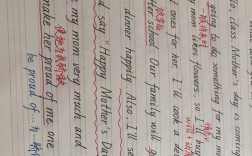 llo, class Mother's Day is coming
going to do something special
mom likes flowers, so I
buy
l ones for her. I'll cook a de
ter school. Our family will g
dinner happily. Also, I'll se
d say "Happy Mother's Day
my mom very much and
使她为我骄傲
make her proud of me one
be proud of …